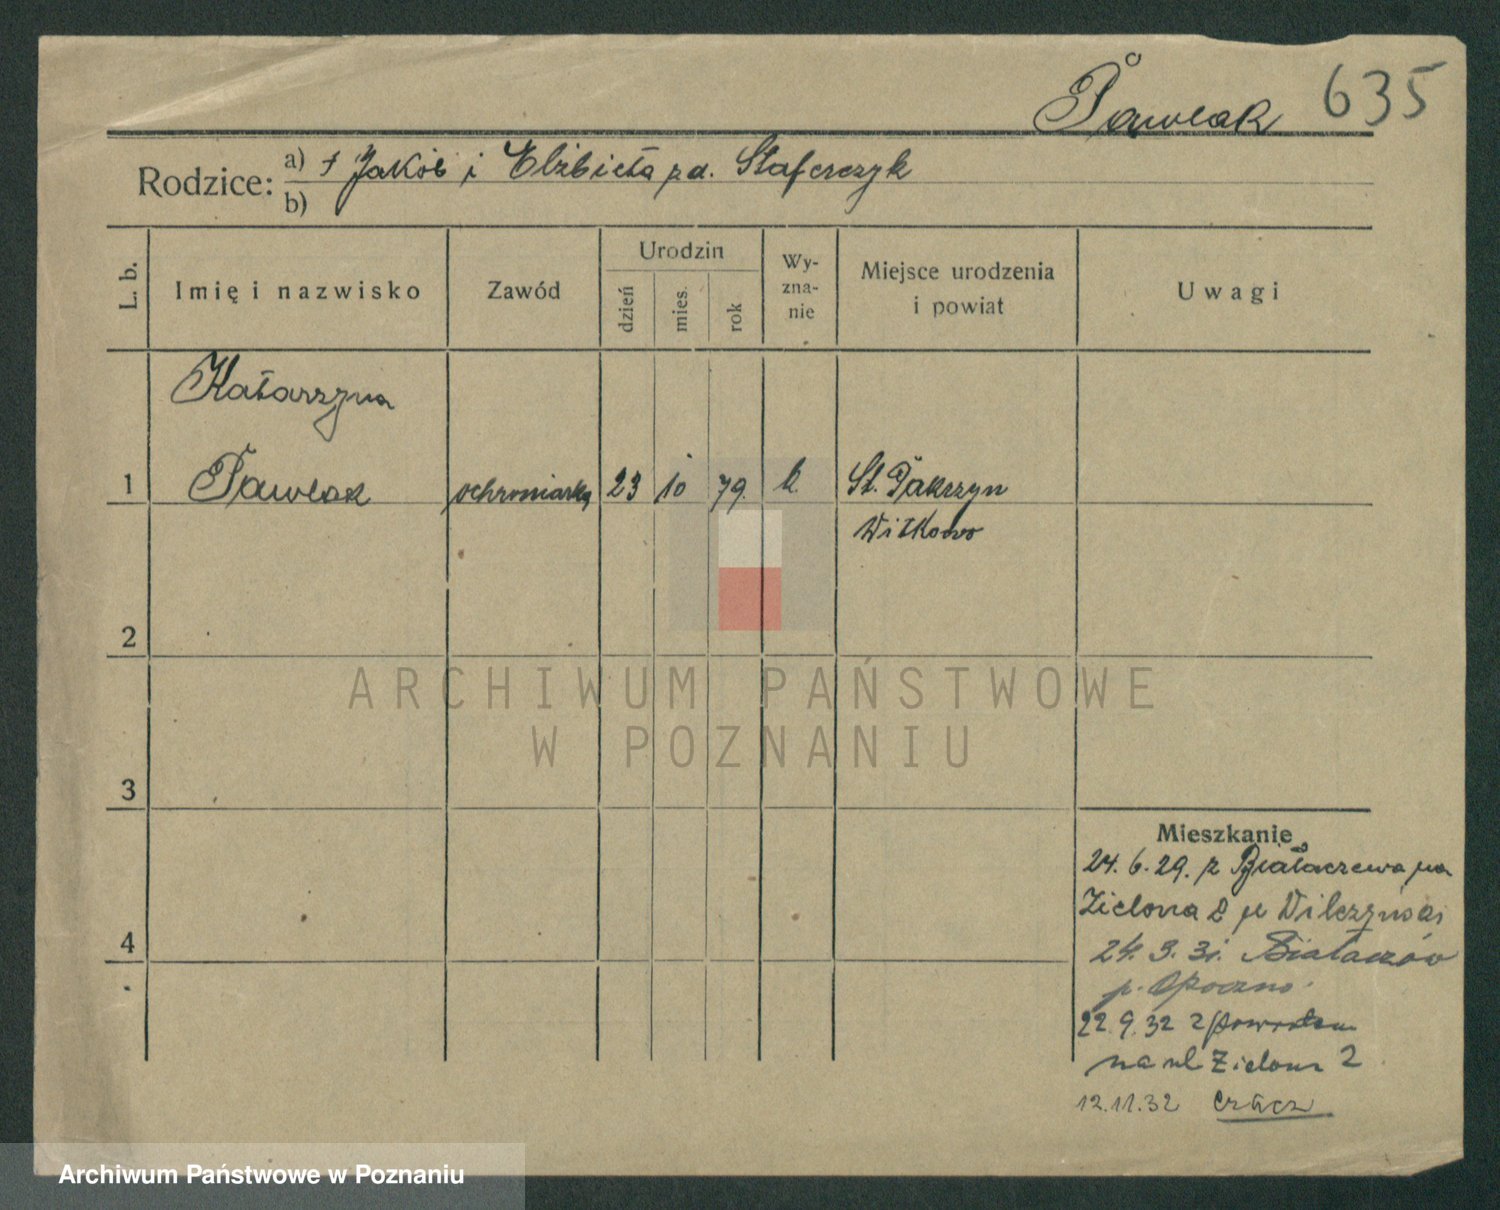 Pawlak 635
Rodzice: a) † Jakób i Elżbieta zd.
b)
L. b. Imię i nazwisko Zawód Urodzin Wy-
zna-
nie Miejsce urodzenia
i powiat Uwagi
dzień mies. rok
Katarzyna
1 Pawlak ochroniarka 23 10 79. k. St. Pakszyn
Witkowo
2
3
Mieszkanie
24. 6. 29. z Białaczewa na
Zielona 2
4
24. 9. 31. Białaczów
p. Opoczno
22.9.32 z powrotem
na ul Zielona 2
12.11.32 Czacz
ARCHIWUM PAŃSTWOWE
W POZNANIU
Archiwum Państwowe w Poznaniu